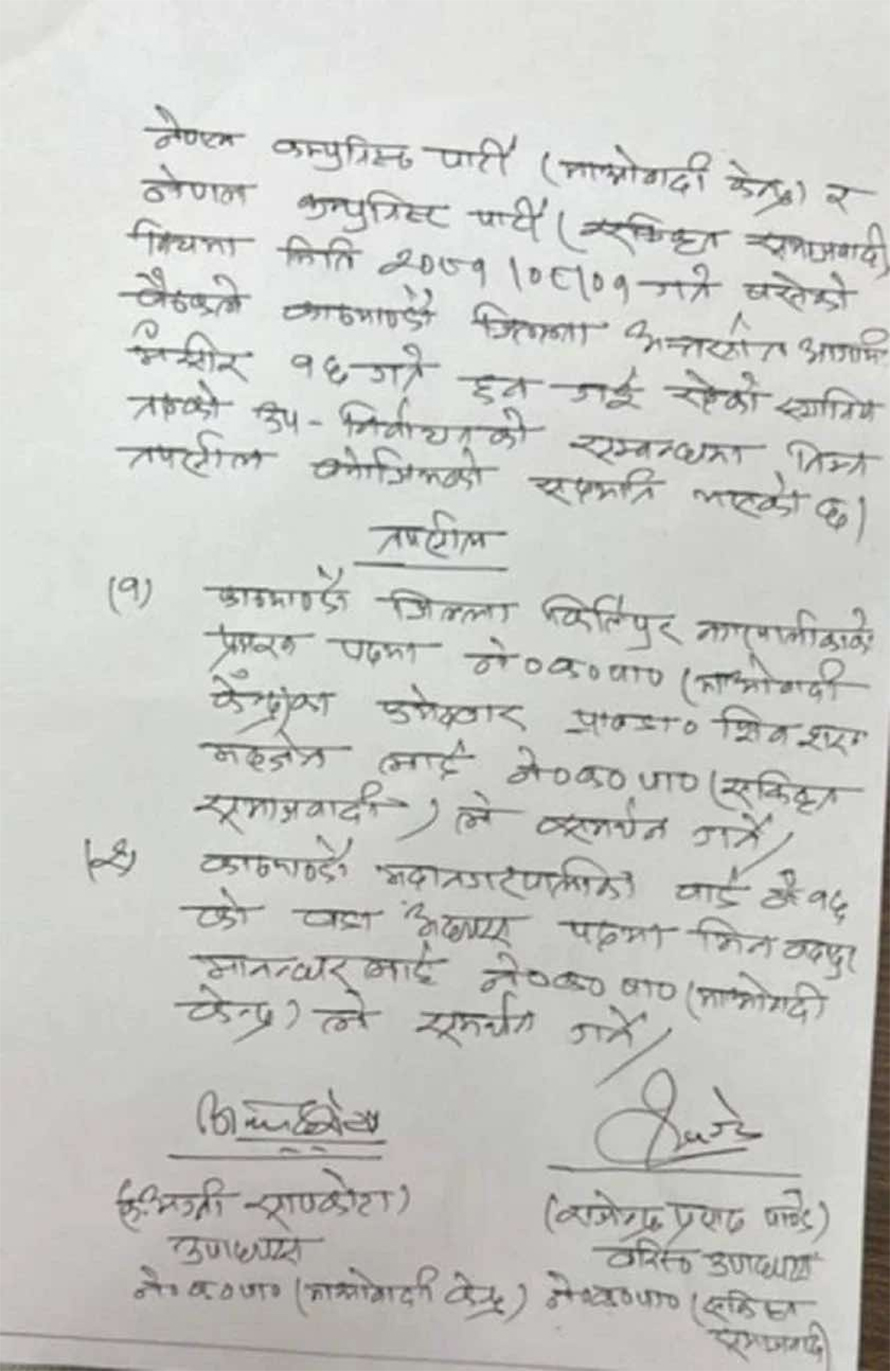 नेपाल कम्युनिस्ट पार्टी (माओवादी केन्द्र) र
नेपाल कम्युनिस्ट पार्टी (एकिकृत समाजवादी)
बिचमा मिति २०८१।०८।०१ गते बसेको
बैठकले काठमाण्डौ जिल्ला अन्तर्गत आगामी
मंसीर १६ गते हुन गई रहेको स्थानिय
तहको उप-निर्वाचनको सम्बन्धमा निम्न
तपशील बमोजिमको सहमति भएको छ।
तपशील
(१) काठमाण्डौ जिल्ला किर्तिपुर नगरपालीकाको
प्रमुख पदमा ने०क०पा० (माओवादी
केन्द्र)का उमेदवार प्रा०डा० शिव शरण
महर्जन लाई ने०क०पा० (एकिकृत
समाजवादी) ले समर्थन गर्ने।
(२) काठमाण्डौ महानगरपालिका वार्ड नं १६
को वडा अध्यक्ष पदमा मित बहादुर
मानन्धर लाई ने०क०पा० (माओवादी
केन्द्र) ले समर्थन गर्ने।
(राजेन्द्र प्रसाद पाण्डे)
उपाध्यक्ष
वरिष्ठ उपाध्यक्ष
ने०क०पा० (माओवादी केन्द्र) ने०क०पा० (एकिकृत
समाजवादी)